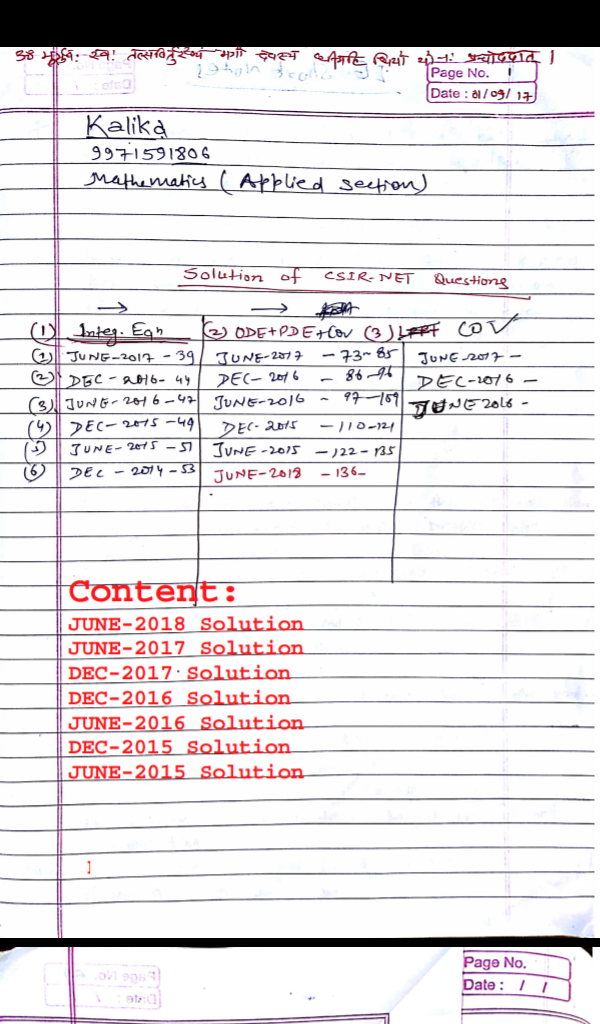 ॐ भूर्भुवः स्वः तत्सवितुर्वरेण्यं भर्गो देवस्य धीमहि धियो यो नः प्रचोदयात् ।
Page No. 1
Date : 01/09/17
Kalika
9971591806
Mathematics ( Applied section)
Solution of CSIR-NET Questions
→ →
(1) Integ. Eqn (2) ODE+PDE+COV (3) COV ✓
(1) JUNE-2017 - 39 JUNE-2017 - 73-85 JUNE-2017 -
(2) DEC - 2016 - 44 DEC - 2016 - 86-96 DEC-2016 -
(3) JUNE-2016 - 47 JUNE-2016 - 97-109 JUNE 2016 -
(4) DEC-2015 - 49 DEC-2015 - 110-121
(5) JUNE-2015 - 51 JUNE-2015 - 122-135
(6) DEC - 2014 - 53 JUNE-2018 - 136-
Content:
JUNE-2018 Solution
JUNE-2017 Solution
DEC-2017 Solution
DEC-2016 Solution
JUNE-2016 Solution
DEC-2015 Solution
JUNE-2015 Solution
Page No.
Date : / /